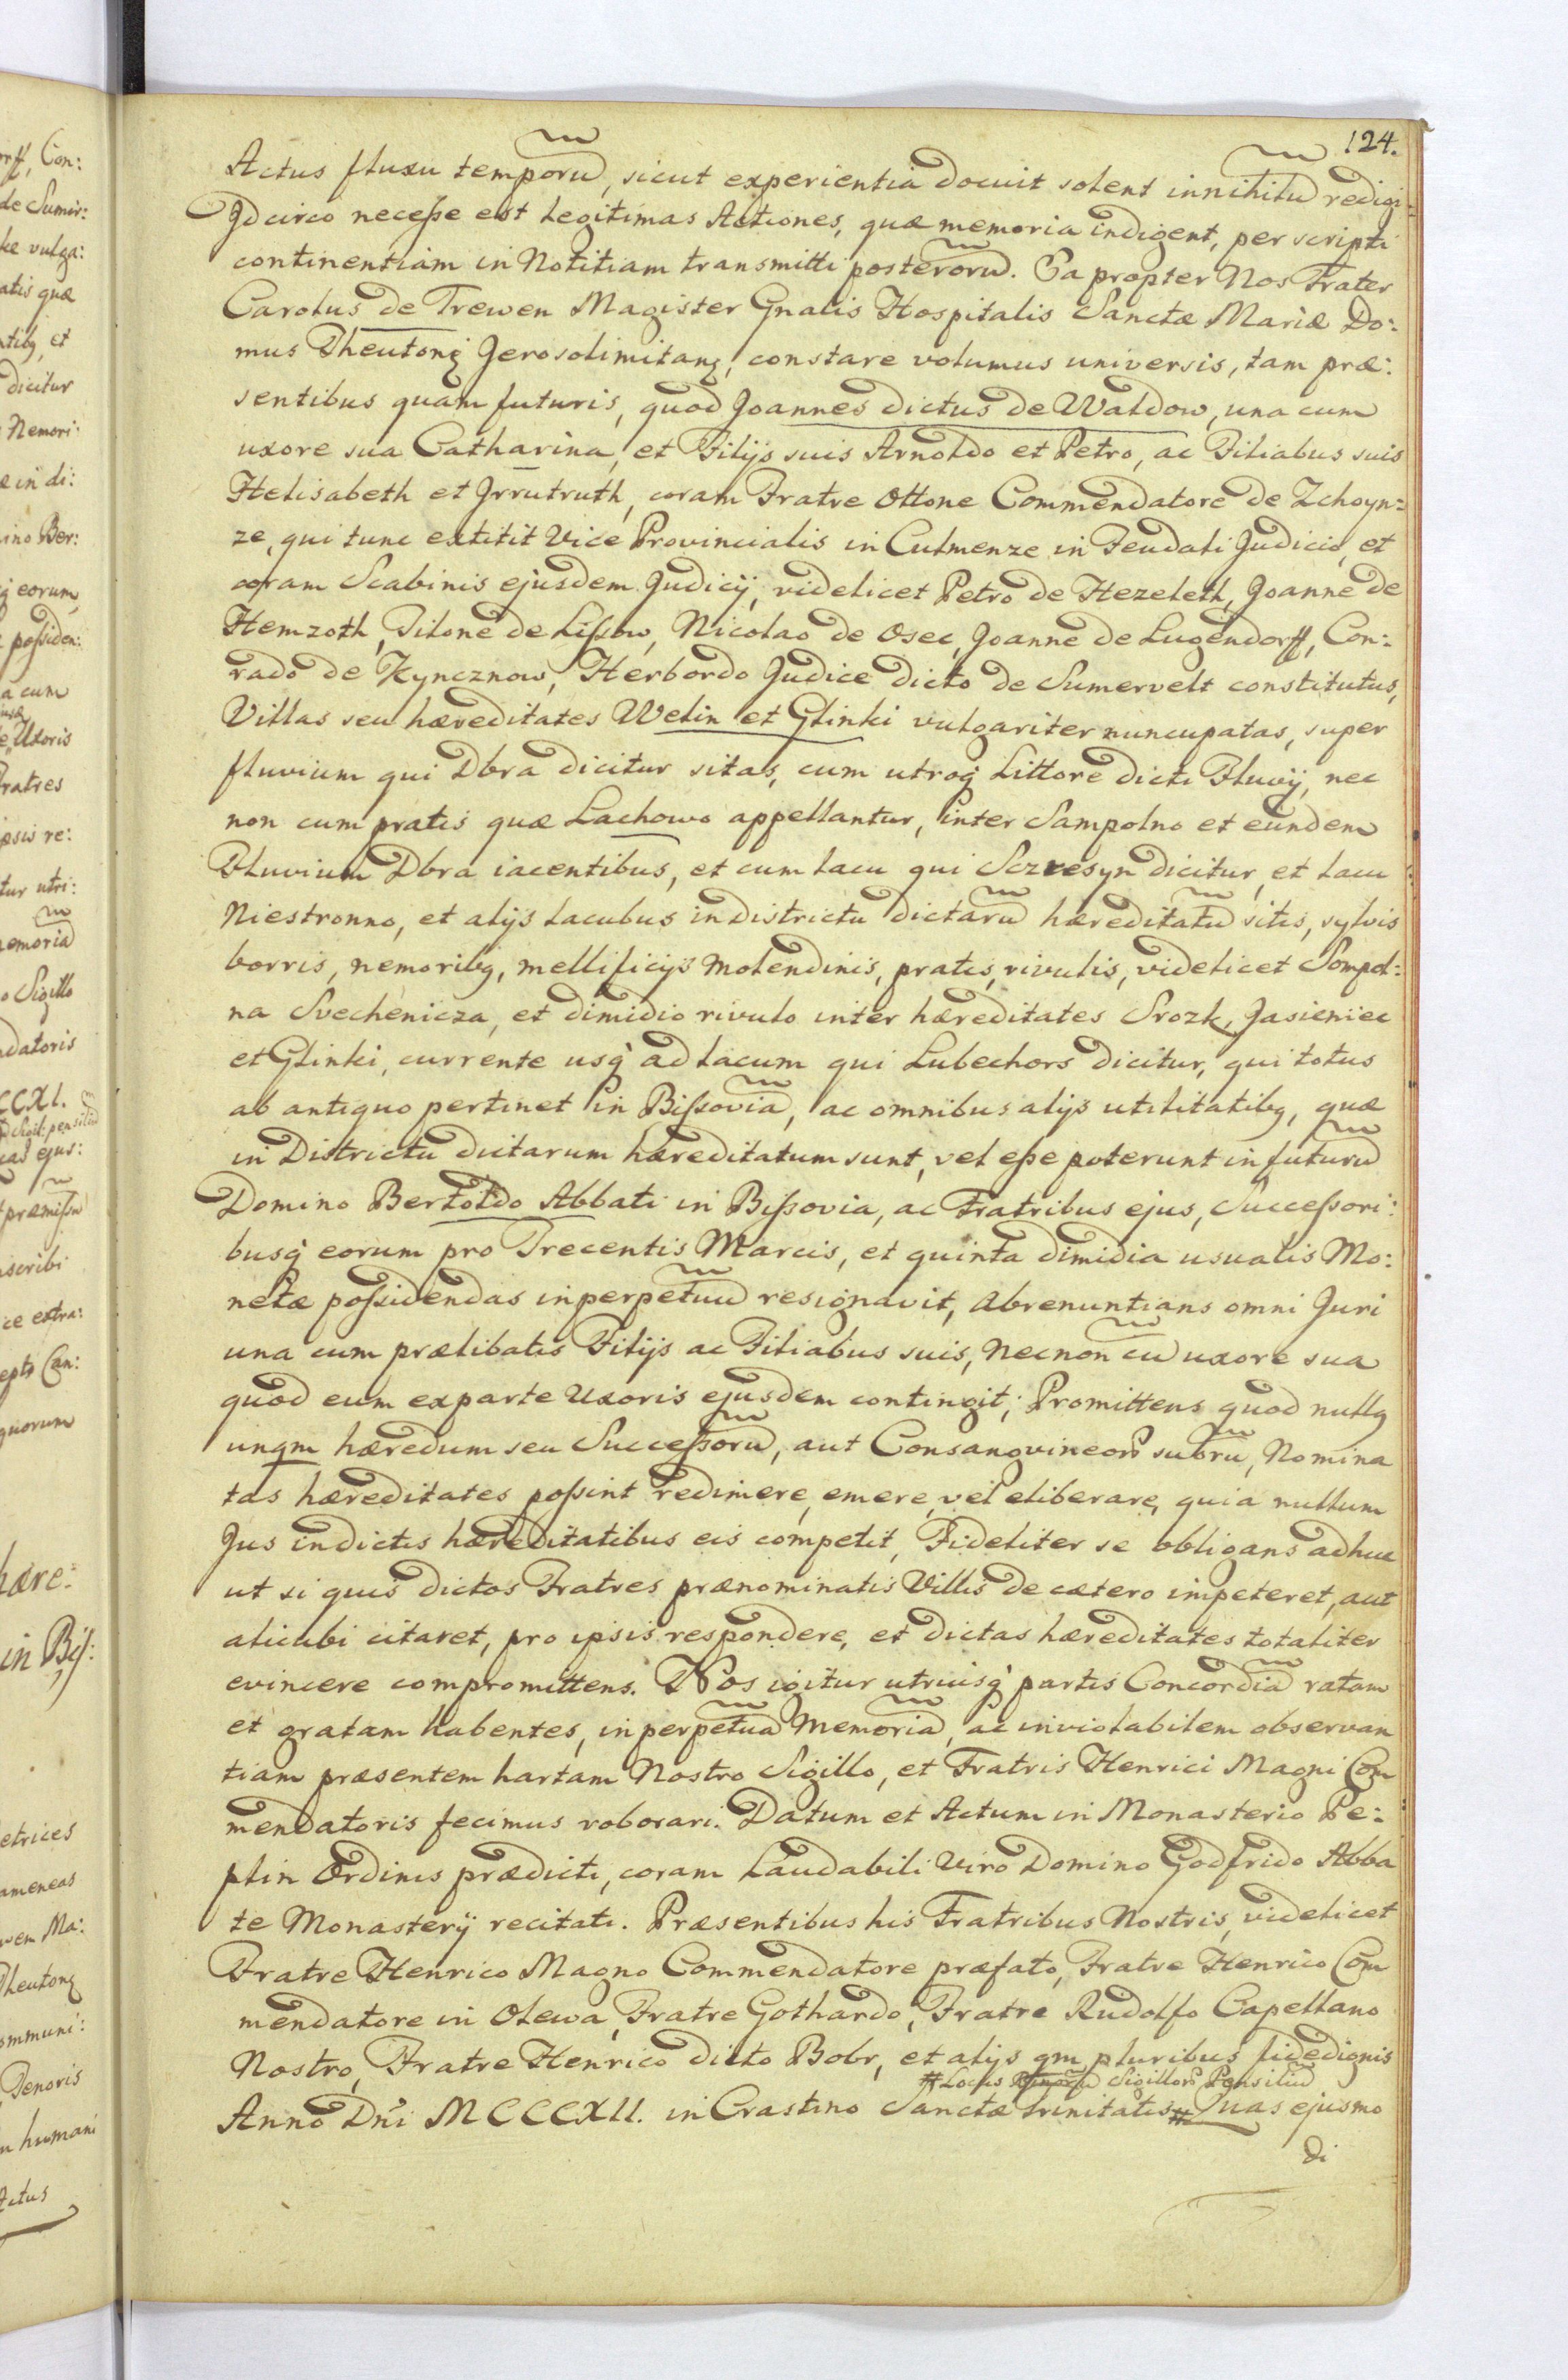 124.
Actus fluxu temporū, sicut experientia docuit solent in nihilū redigi
Jdcirco necesse est legitimas Actiones, quæ memoria indigent, per scripti
continentiam in Notitiam transmitti posterorū. Ea propter Nos Frater
Carolus de Trewen Magister Gnalis Hospitalis Sanctæ Mariæ Do:
mus Theutonꝫ Jerosolimitanꝫ, constare volumus universis, tam præ:
sentibus quam futuris, quod Joannes dictus de Waldow, una cum
uxore sua Catharina, et Filijs suis Arnoldo et Petro, ac Filiabus suis
Helisabeth et Jrrutruth, coram Fratre Ottone Commendatore de Zchoyn=
ze, qui tunc extitit Vice Provincialis in Culmenze in Feudali Judicio, et
coram Scabinis ejusdem Judicij, videlicet Petro de Hezeleth, Joanne de
Hemzoth, Tilone de Lissow, Nicolao de Osec, Joanne de Lugendorff, Con:
rado de Kyncznow, Herbordo Judice dicto de Sumervelt constitutus,
Villas seu hæreditates Welin et Glinki vulgariter nuncupatas, super
fluvium qui Dbra dicitur sitas, cum utroqꝫ Littore dicti Fluvij, nec
non cum pratis quæ Lachowo appellantur, inter Sampolno et eundem
Fluvium Dbra iacentibus, et cum lacu qui Sczresyn dicitur, et lacu
Niestronno, et alijs lacubus in Districtu dictarū hæreditatū sitis, sylvis
borris, nemoribꝫ, mellificijs Molendinis, pratis, rivulis, videlicet Sompol:
na Svechenicza, et dimidio rivulo inter hæreditates Srozk, Jasieniec
et Glinki, currente usqꝫ ad lacum qui Lubechors dicitur, qui totus
ab antiquo pertinet in Bissoviā, ac omnibus alijs utilitatibꝫ, quæ
in Districtu dictarum hæreditatum sunt, vel esse poterunt in futurū
Domino Bertoldo Abbati in Bissovia, ac Fratribus ejus, Successori:
busqꝫ eorum pro Trecentis Marcis, et quinta dimidia usualis Mo:
netæ possidendas in perpetuū resignavit, Abrenuntians omni Juri
una cum prælibatis Filijs ac Filiabus suis, Necnon cū uxore sua
quod eum ex parte Uxoris ejusdem contingit; Promittens quod nullꝫ
unqm hæredum seu Successorū, aut Consangvineorꝫ suorū, Nomina
tas hæreditates possint redimere, emere, vel eliberare, quia nullum
Jus in dictis hæreditatibus eis competit, Fideliter se obligans ad huc
ut si quis dictos Fratres prænominatis Villis de cætero impeteret, aut
alicubi citaret, pro ipsis respondere, et dictas hæreditates totaliter
evincere compromittens. Nos igitur utriusqꝫ partis Concordiā ratam
et gratam habentes, in perpetuā Memoriā, ac inviolabilem observan
tiam præsentem hartam Nostro Sigillo, et Fratris Henrici Magni Com
mendatoris fecimus roborari. Datum et Actum in Monasterio Pe:
plin Ordinis prædicti, coram Laudabili Viro Domino Godfrido Abba
te Monasterij recitati. Præsentibus his Fratribus Nostris, videlicet
Fratre Henrico Magno Commendatore præfato, Fratre Henrico Com
mendatore in Olewa, Fratre Gothardo, Fratre Rudolfo Capellano
Nostro, Fratre Henrico dicto Bobr, et alijs qm pluribus fidedignis
# Locus Sigillorꝫ Pensiliū
Anno Dn̄i MCCCXII. in Crastino Sanctæ Trinitatis # Quas ejusmo
di